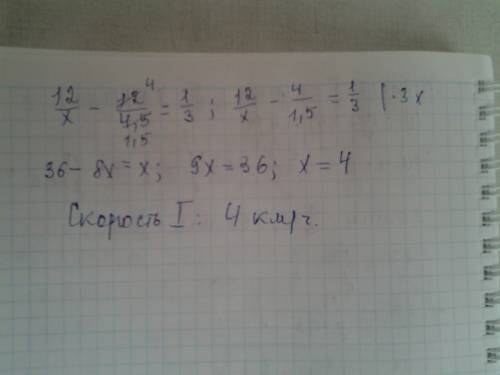 12/x - 12⁴/4,5 1,5 = 1/3 ; 12/x - 4/1,5 = 1/3 | · 3x
36 - 8x = x; 9x = 36; x = 4
Скорость I : 4 км/ч.